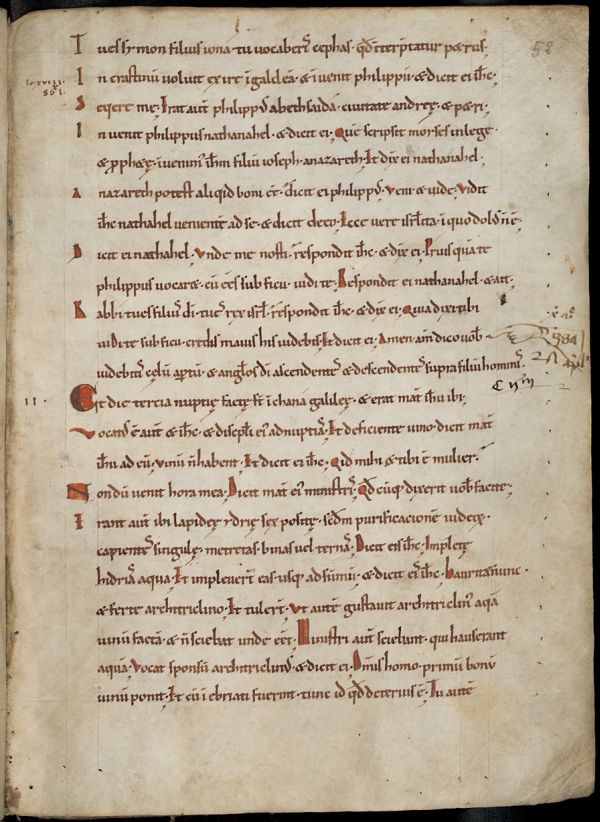 58
Tu es sẏmon filius iona · tu vocaberis cephas · qđ īterp̄tatur pærus ·
In crastinū voluit exire ī galileā · & īvenit philippū · & dicit ei ihc̄ ·
Seq̄ere me · Erat aut̄ philippus abethsaida · civitate andreę · & pæri ·
Invenit philippus nathanahel · & dicit ei · Quē scripsit moẏses in lege ·
& p̄ph&ę · īvenim' ih̄m filiū ioseph · anazar&h · Et dix̄ ei nathanahel ·
a nazar&h potest aliqid boni eē · Dicit ei philippus · veni & vide · vidit
ihc̄ nathahel venientē ad se · & dicit de eo · Ecce vere isrl̄ita · ī quo dolus n̄ ē ·
Dicit ei nathahel · vnde me nosti · respondit ihc̄ · & dix̄ ei · Prius quā te
philippus vocar& · cū eēs sub ficu · vidi te · Respondit ei nathanahel · & ait ·
Rabbi tu es filius di · tu es rex isrl̄ · respondit ihc̄ · & dix̄ ei · Quia dixi tibi
vidi te sub ficu · credis maius his videbis · Et dicit ei · Amen am̄ dico vob̄
videbitis celū aptū · & anglos di ascendentes & descendentes supra filiū hominis ·
II · Et die tercia nuptię factę st̄ ī chana galileę · & erat mat̄ ihu ibi ·
Vocatus ē aut̄ & ihc̄ · & discipli ei' ad nuptias · Et deficiente vino · dicit mat̄
ihu ad eū · vinū n̄ habent · Et dicit ei ihc̄ · Qid mihi & tibi ē mulier ·
Nondū venit hora mea · Dicit mat̄ ei' ministris · Qđ cūq dixerit vob̄ facite ·
Erant aut̄ ibi lapideę ẏdrię sex positę · sedm̄ purificacionē iudeoꝝ ·
capientes singulę · metretas · binas vel ternas · Dicit eis ihc̄ · Implete
hidrias aqua · Et impleverūt eas · usq ad sūmū · & dicit eis ihc̄ · haurite nunc ·
& ferte architriclino · Et tulerūt · Vt autē gustavit architriclin' aqā
vinū factā · & n̄ sciebat unde eēt · Ministri aut̄ sciebant · qui hauserant
aquā · Vocat sponsū architriclinus · & dicit ei · Omīs homo · primū bonū
vinū ponit · Et cū īebriati fuerint · tunc id qđ deterius ē · Tu autē